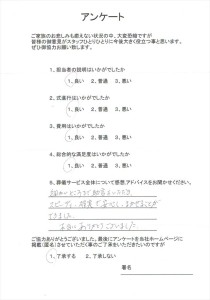 アンケート
ご家族のお悲しみも癒えない状況の中、大変恐縮ですが
皆様の御意見がスタッフひとりひとりに今後大きく役立つ事と思います。
ぜひ御協力お願い致します。
1、担当者の説明はいかがでしたか
1、良い 2、普通 3、悪い
2、式進行はいかがでしたか
1、良い 2、普通 3、悪い
3、費用はいかがでしたか
1、良い 2、普通 3、悪い
4、総合的な満足度はいかがでしたか
1、良い 2、普通 3、悪い
5、葬儀サービス全体について感想、アドバイスをお聞かせください。
できました。
本当にありがとうございました
ご協力ありがとうございました。最後にアンケートを当社ホームページに
掲載(匿名)させていただく事のご了承をいただきたいのですが
1、了承する 2、了承しない
署名